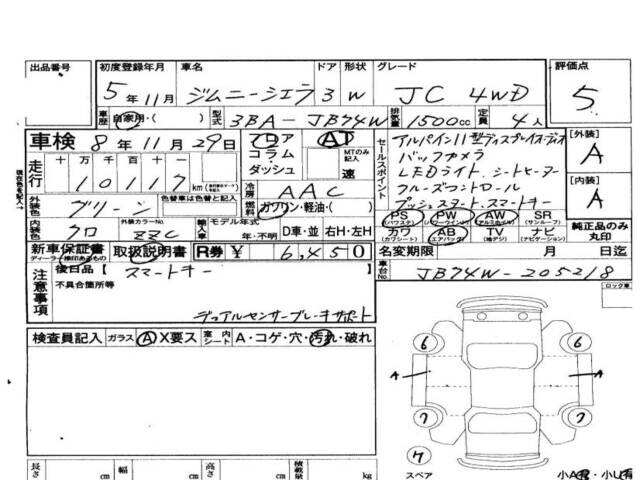 出品番号 初度登録年月 車名 ドア 形状 グレード 評価点
5年11月 ジムニーシエラ 3 W JC 4WD 5
車歴 自家用・( ) 型式 3BA-JB74W 排気量 1500cc 定員 4人
車検 8年11月29日 フロア・コラム・ダッシュ AT MTのみ記入 速
セールスポイント
アルパイン11型ディスプレイオーディオ
バックカメラ
LEDライト、シートヒーター
クルーズコントロール
プッシュスタート、スマートキー
[外装] A
[内装] A
現在色を記入→
走行 十 万 千 百 十 一
10117 km
冷房 AAC
外装色 グリーン 色替車は色替と記入 燃料 ガソリン・軽油・( )
内装色 クロ 外装カラーNo. ZZC 輸入車 モデル年式 年・不明 D車・並 右H・左H
PS (パワステ) PW (パワーウインドウ) AW (アルミホイル) SR (サンルーフ)
カワ (カワシート) AB (エアバック) TV (地デジ) ナビ (ナビゲーション)
純正品のみ丸印
新車保証書 取扱説明書 R券 ¥ 6,450
ディーラー捺印あるもの
名変期限 月 日迄
注意事項 後日品【 スマートキー 】
不具合箇所等
車台No. JB74W-205218
デュアルセンサーブレーキサポート
ロック車
検査員記入 ガラス A X要ス 室内シート A・コゲ・穴・汚れ・破れ
6 6
A A
7 7
7
スペア
長さ cm 幅 cm 高さ cm 積載量 kg
小A有・小U有